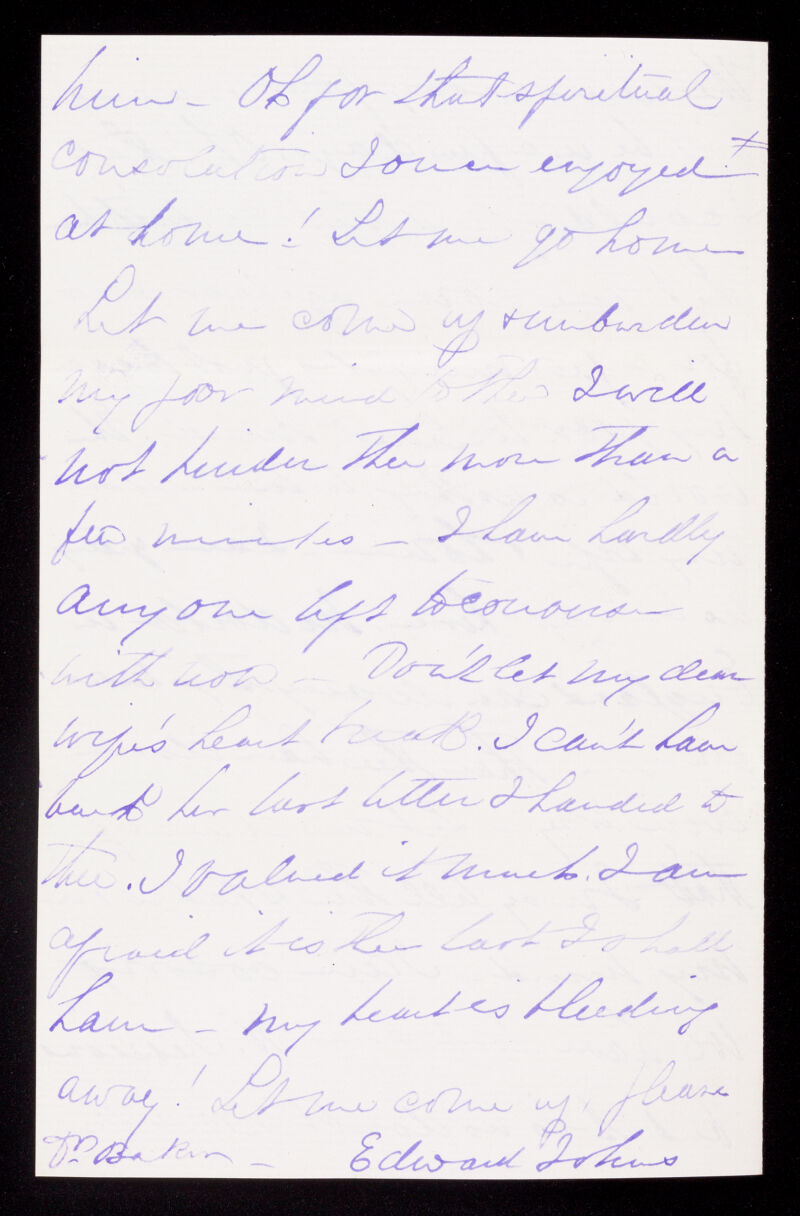 him - Oh for that spiritual
consolation I once enjoyed +
at home! Let me go home
Let me come up & unburden
my poor mind to thee I will
not hinder thee more than a
few minutes - I have hardly
any one left to converse
with now - Don't let my dear
wife's heart break. I can't have
back her last letter I handed to
thee. I valued it much. I am
afraid it is the last I shall
have - my heart is bleeding
away! Let me come up, please
Dr. Baker - Edward Johns